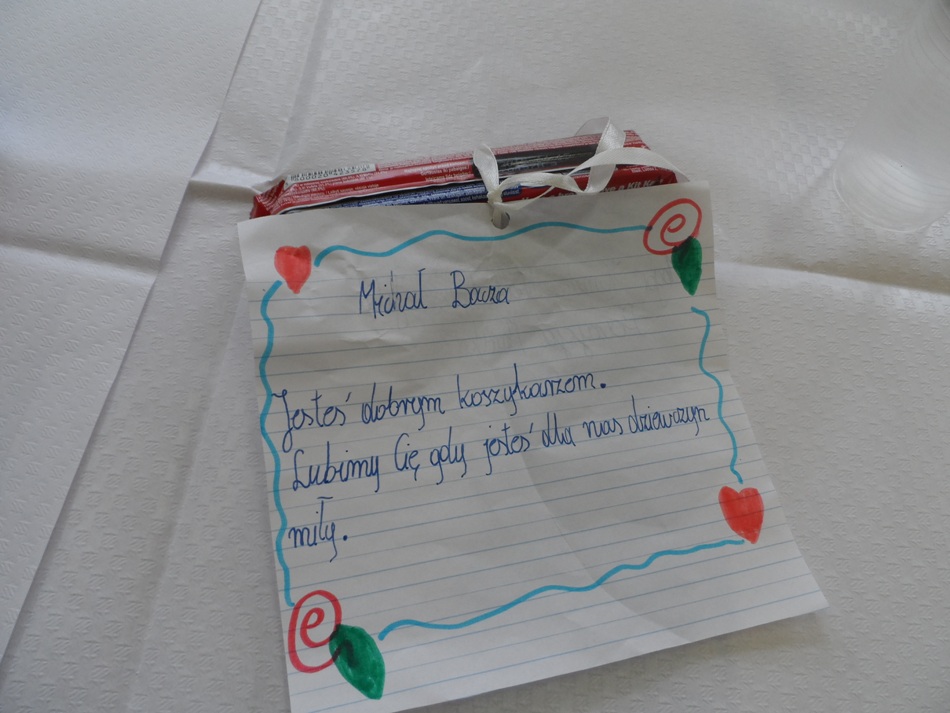 Michał Bacza
Jesteś dobrym koszykarzem.
Lubimy Cię gdy jesteś dla nas dziewczyn
miły.